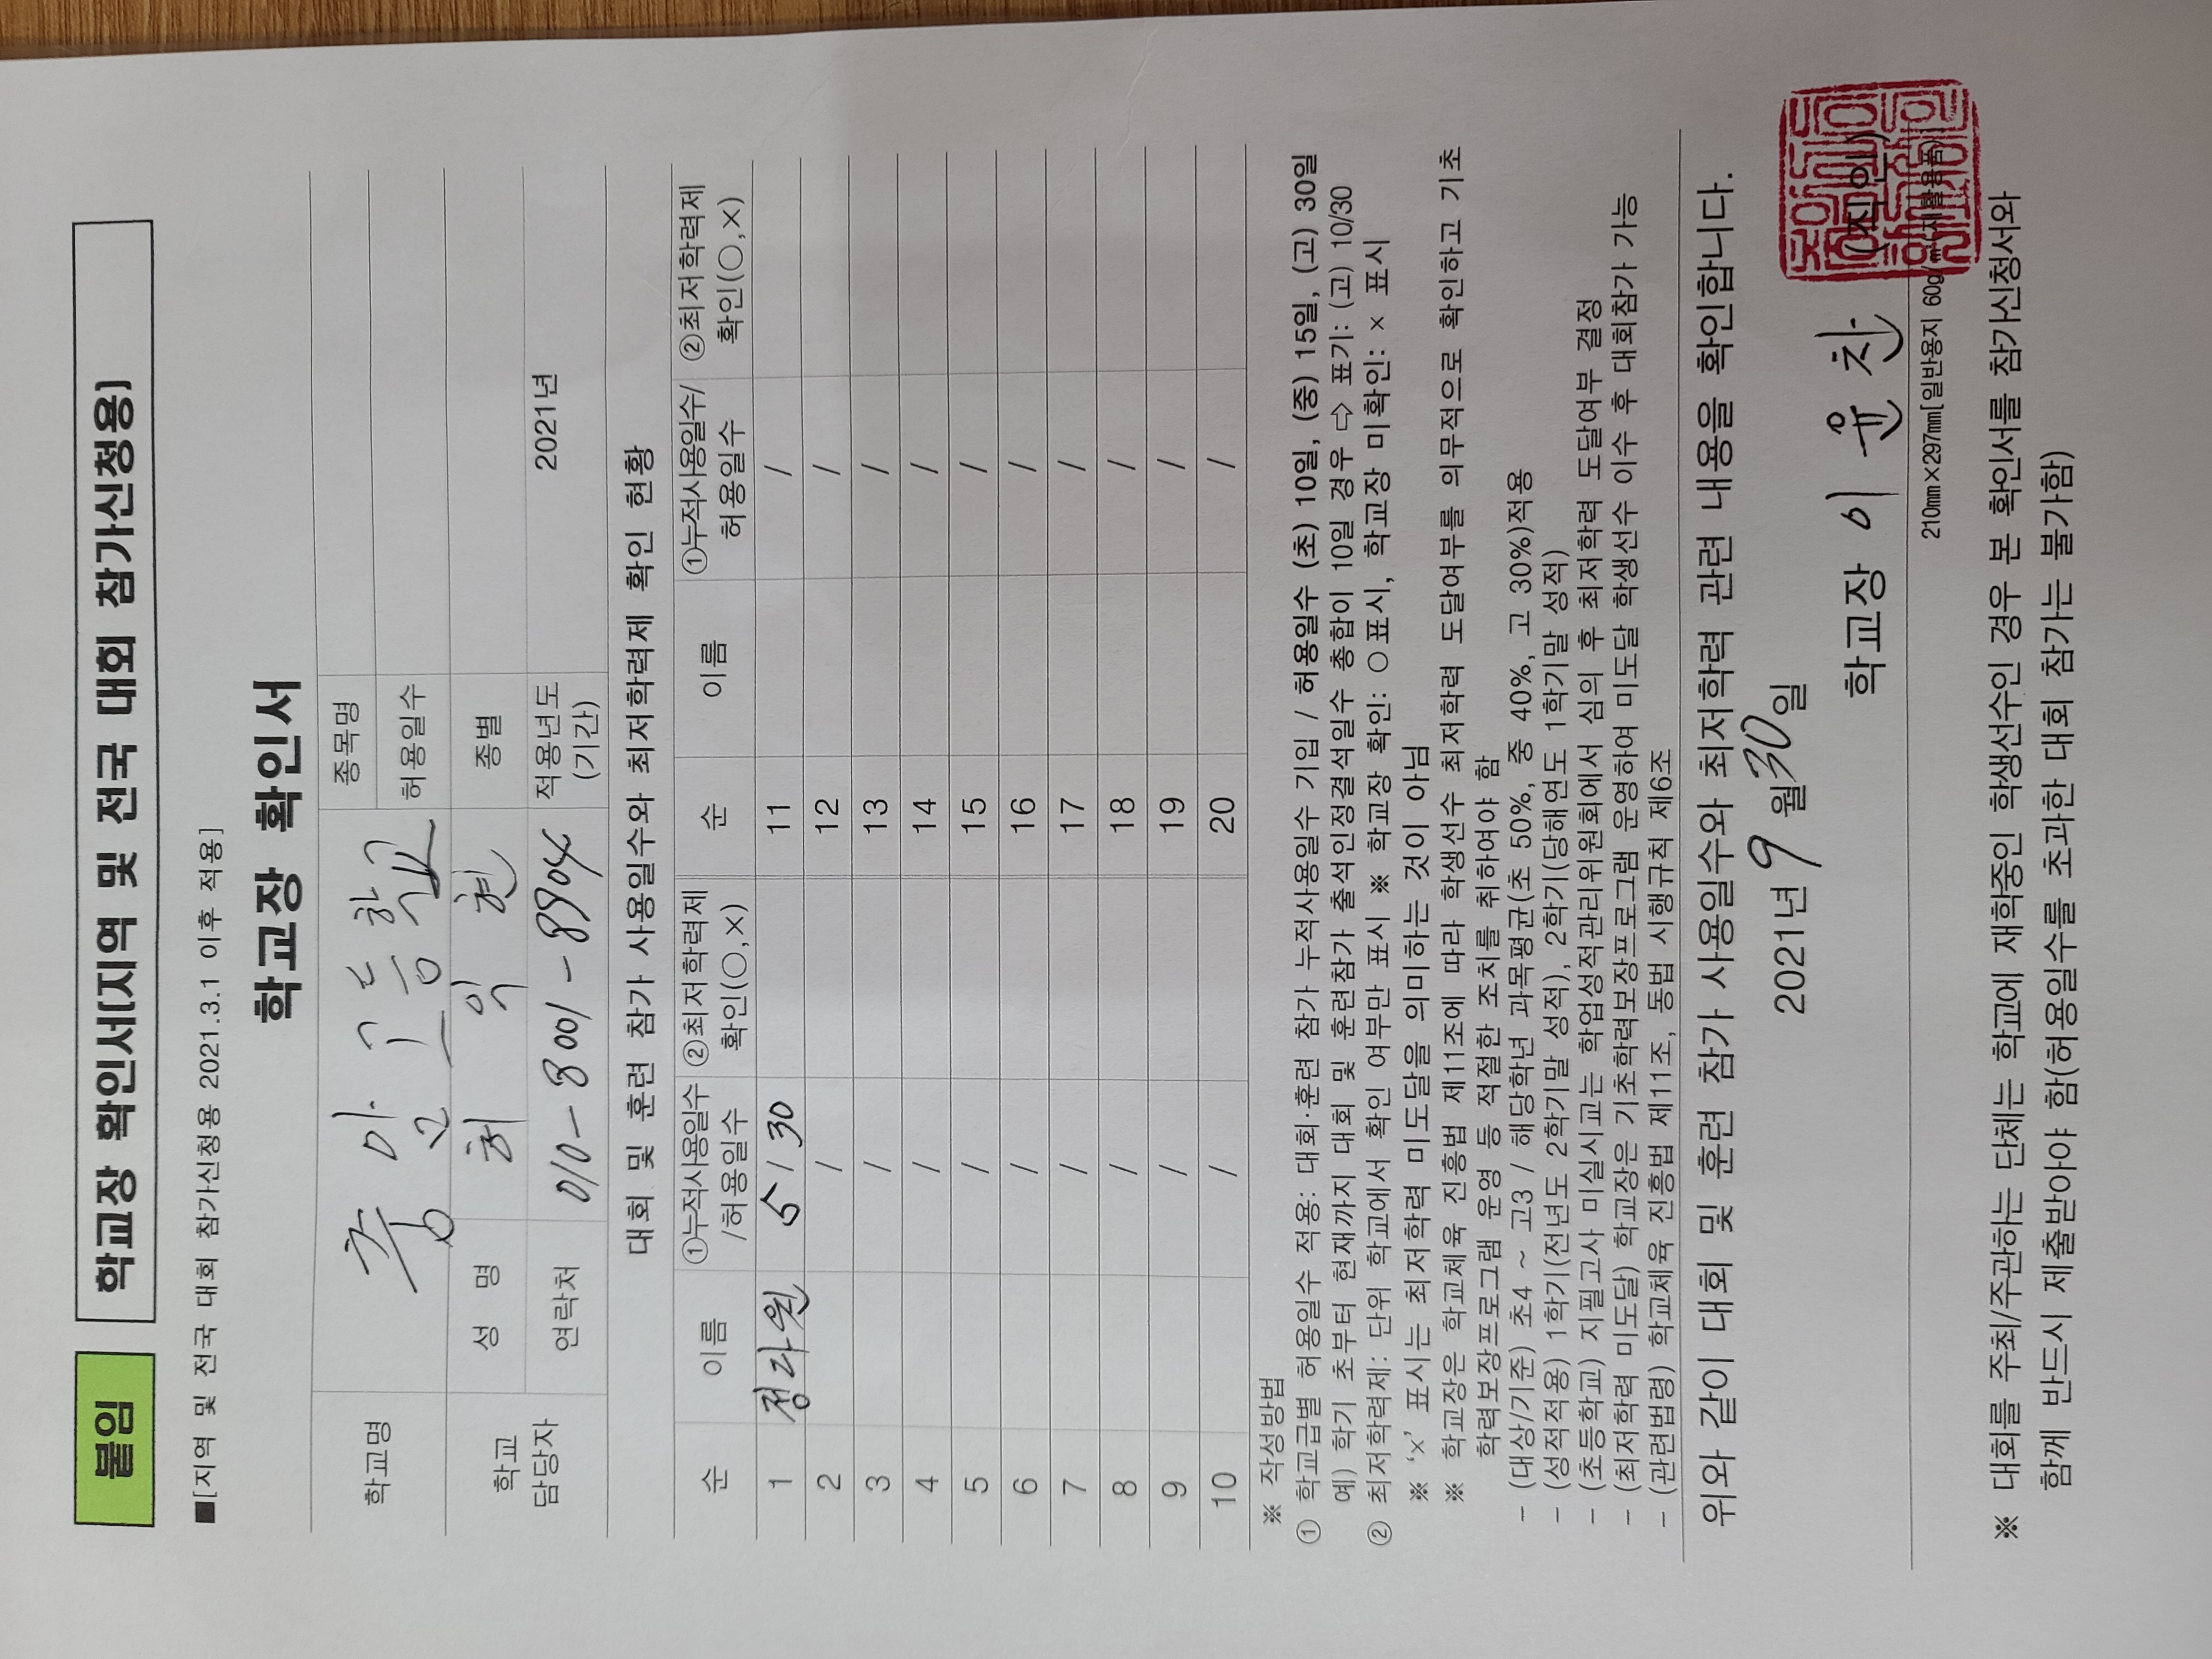 붙임
학교장 확인서(지역 및 전국 대회 참가신청용)
■[지역 및 전국 대회 참가신청용 2021.3.1 이후 적용]
학교장 확인서
학교명 중앙고등학교 종목명
허용일수
학교 담당자 성 명 허 익 원 종별
연락처 010-8001-8904 적용년도 (기간) 2021년
대회 및 훈련 참가 사용일수와 최저학력제 확인 현황
순 이름 ①누적사용일수 /허용일수 ②최저학력제 확인(○,×) 순 이름 ①누적사용일수/ 허용일수 ②최저학력제 확인(○,×)
1 정라원 5 / 30 11 /
2 / 12 /
3 / 13 /
4 / 14 /
5 / 15 /
6 / 16 /
7 / 17 /
8 / 18 /
9 / 19 /
10 / 20 /
※ 작성방법
① 학교급별 허용일수 적용: 대회·훈련 참가 누적사용일수 기입 / 허용일수 (초) 10일, (중) 15일, (고) 30일
예) 학기 초부터 현재까지 대회 및 훈련참가 출석인정결석일수 총합이 10일 경우 ⇨ 표기: (고) 10/30
② 최저학력제: 단위 학교에서 확인 여부만 표시 ※ 학교장 확인: ○표시, 학교장 미확인: × 표시
※ '×' 표시는 최저학력 미도달을 의미하는 것이 아님
※ 학교장은 학교체육 진흥법 제11조에 따라 학생선수 최저학력 도달여부를 의무적으로 확인하고 기초
학력보장프로그램 운영 등 적절한 조치를 취하여야 함
- (대상/기준) 초4 ~ 고3 / 해당학년 과목평균(초 50%, 중 40%, 고 30%)적용
- (성적적용) 1학기(전년도 2학기말 성적), 2학기(당해연도 1학기말 성적)
- (초등학교) 지필고사 미실시교는 학업성적관리위원회에서 심의 후 최저학력 도달여부 결정
- (최저학력 미도달) 학교장은 기초학력보장프로그램 운영하여 미도달 학생선수 이수 후 대회참가 가능
- (관련법령) 학교체육 진흥법 제11조, 동법 시행규칙 제6조
위와 같이 대회 및 훈련 참가 사용일수와 최저학력 관련 내용을 확인합니다.
2021년 9 월 30일
학교장 이 윤 찬 (직인)
210㎜×297㎜[일반용지 60g/㎡(재활용품)]
※ 대회를 주최/주관하는 단체는 학교에 재학중인 학생선수인 경우 본 확인서를 참가신청서와
함께 반드시 제출받아야 함(허용일수를 초과한 대회 참가는 불가함)